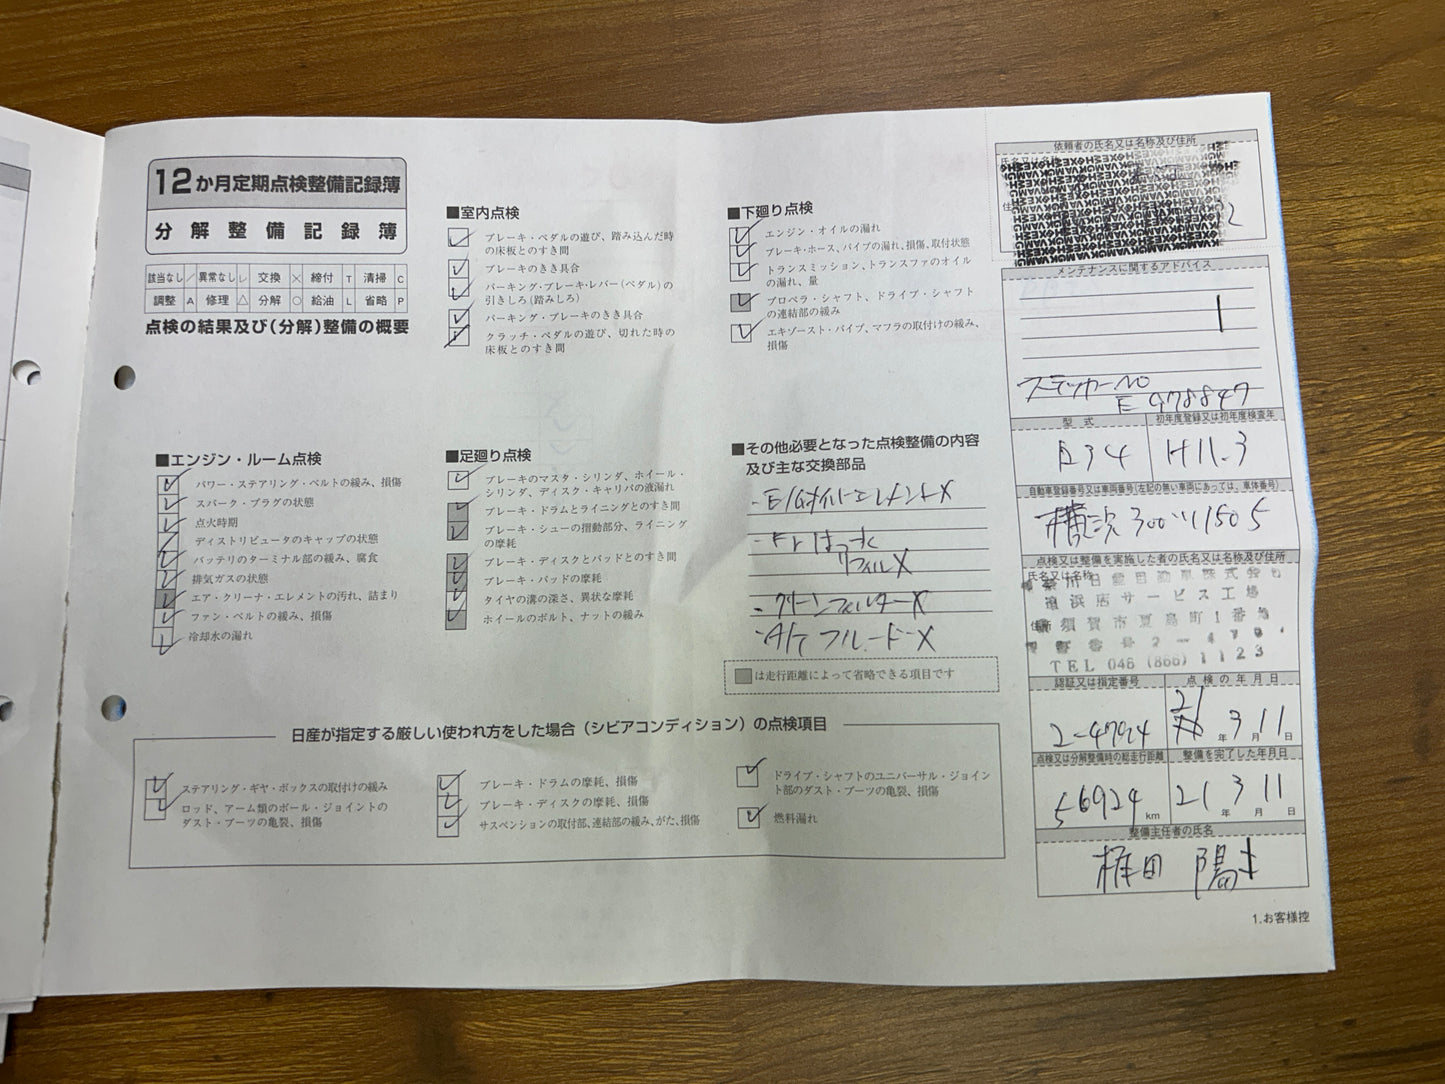 12か月定期点検整備記録簿
分解整備記録簿
該当なし ／ 異常なし レ 交換 × 締付 T 清掃 C
調整 A 修理 △ 分解 ○ 給油 L 省略 P
点検の結果及び(分解)整備の概要
■エンジン・ルーム点検
パワー・ステアリング・ベルトの緩み、損傷
スパーク・プラグの状態
点火時期
ディストリビュータのキャップの状態
バッテリのターミナル部の緩み、腐食
排気ガスの状態
エア・クリーナ・エレメントの汚れ、詰まり
ファン・ベルトの緩み、損傷
冷却水の漏れ
■室内点検
ブレーキ・ペダルの遊び、踏み込んだ時
の床板とのすき間
ブレーキのきき具合
パーキング・ブレーキ・レバー(ペダル)の
引きしろ(踏みしろ)
パーキング・ブレーキのきき具合
クラッチ・ペダルの遊び、切れた時の
床板とのすき間
■足廻り点検
ブレーキのマスタ・シリンダ、ホイール・
シリンダ、ディスク・キャリパの液漏れ
ブレーキ・ドラムとライニングとのすき間
ブレーキ・シューの摺動部分、ライニング
の摩耗
ブレーキ・ディスクとパッドとのすき間
ブレーキ・パッドの摩耗
タイヤの溝の深さ、異状な摩耗
ホイールのボルト、ナットの緩み
■下廻り点検
エンジン・オイルの漏れ
ブレーキ・ホース、パイプの漏れ、損傷、取付状態
トランスミッション、トランスファのオイル
の漏れ、量
プロペラ・シャフト、ドライブ・シャフト
の連結部の緩み
エキゾースト・パイプ、マフラの取付けの緩み、
損傷
■その他必要となった点検整備の内容
及び主な交換部品
・E/Gオイルトエレメント×
・Fr はっ水
リフィル×
・クリーンフィルター×
・A/Tフルード×
は走行距離によって省略できる項目です
日産が指定する厳しい使われ方をした場合(シビアコンディション)の点検項目
ステアリング・ギヤ・ボックスの取付けの緩み
ロッド、アーム類のボール・ジョイントの
ダスト・ブーツの亀裂、損傷
ブレーキ・ドラムの摩耗、損傷
ブレーキ・ディスクの摩耗、損傷
サスペンションの取付部、連結部の緩み、がた、損傷
ドライブ・シャフトのユニバーサル・ジョイン
ト部のダスト・ブーツの亀裂、損傷
燃料漏れ
依頼者の氏名又は名称及び住所
メンテナンスに関するアドバイス
ステッカーNo
E 978847
型式 初年度登録又は初年度検査年
R34 H11.3
自動車登録番号又は車両番号(左記の無い車両にあっては、車体番号)
点検又は整備を実施した者の氏名又は名称及び住所
氏名又は名称
日産自動車株式会社
店サービス工場
須賀市夏島町1番
TEL 046 (866) 1123
認証又は指定番号 点検の年月日
21年3月11日
点検又は分解整備時の総走行距離 整備を完了した年月日
56924 km 21年3月11日
整備主任者の氏名
1.お客様控